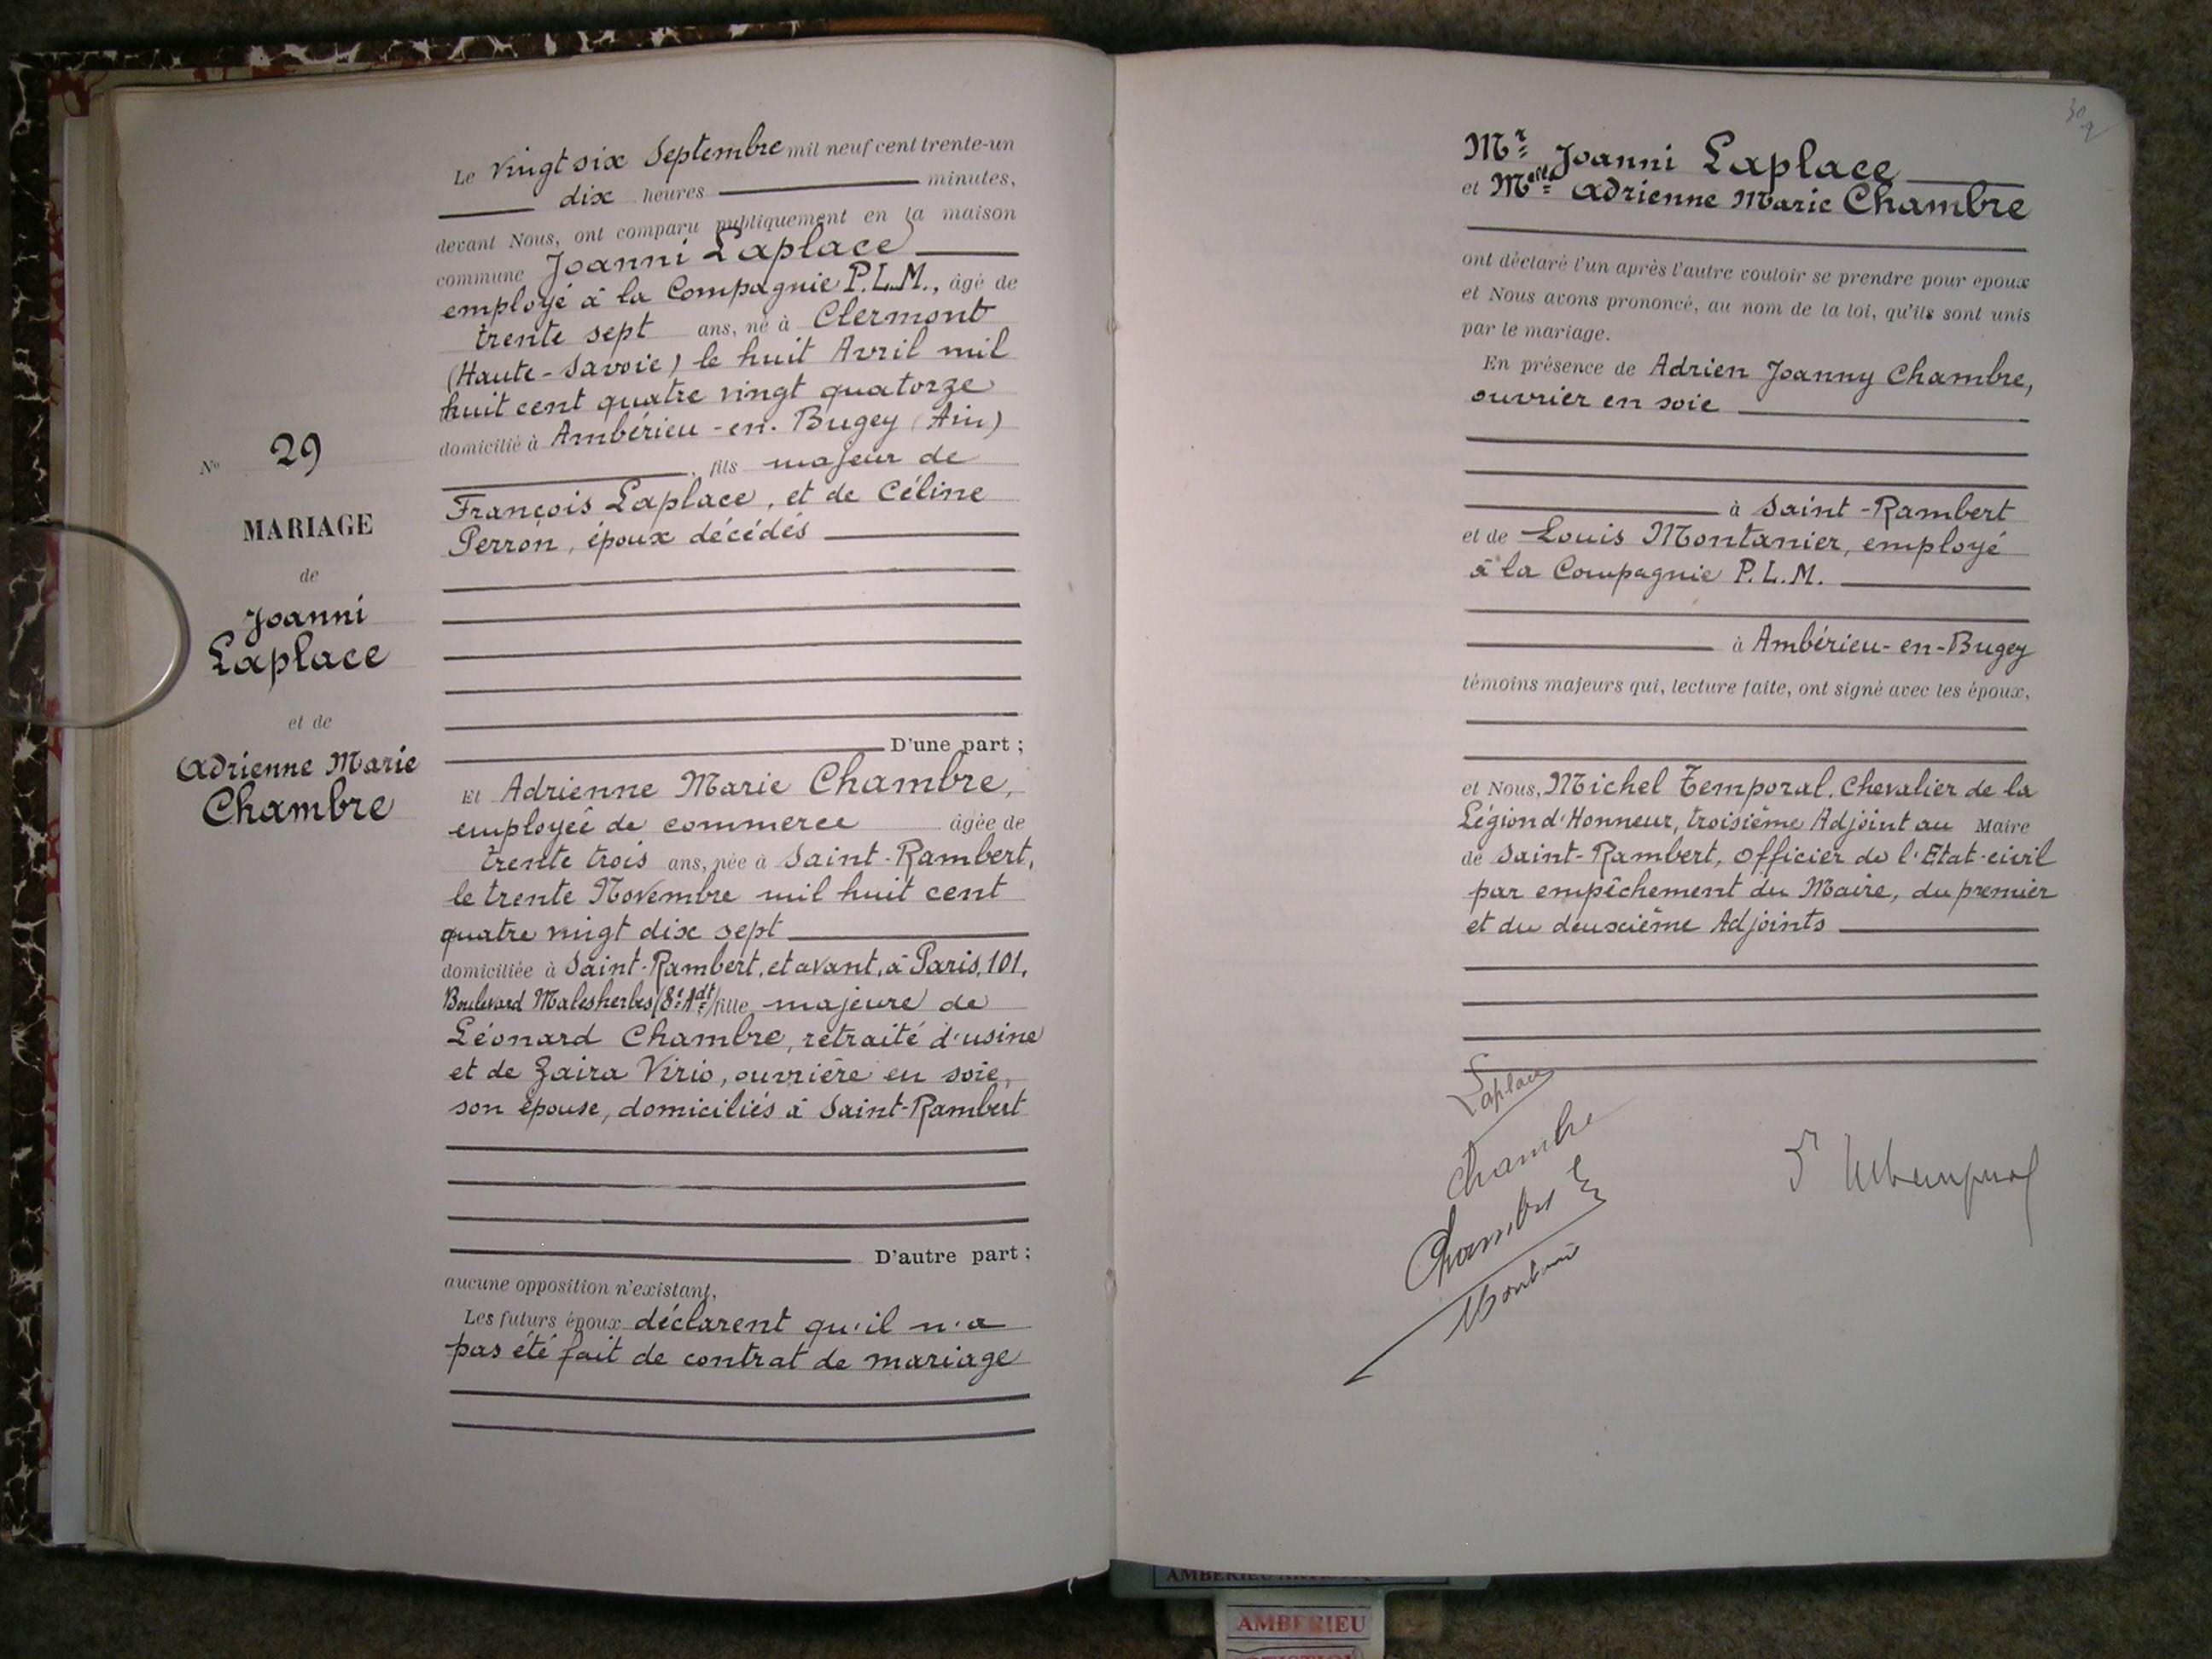 Le vingt six Septembre mil neuf cent trente-un
dix heures minutes,
devant Nous, ont comparu publiquement en la maison
commune Joanni Laplace
employé à la Compagnie P.L.M., âgé de
trente sept ans, né à Clermont
(Haute-Savoie) le huit Avril mil
huit cent quatre vingt quatorze
domicilié à Ambérieu-en-Bugey (Ain)
, fils majeur de
François Laplace, et de Céline
Perron, époux décédés
D'une part ;
Et Adrienne Marie Chambre,
employée de commerce âgée de
trente trois ans, née à Saint-Rambert,
le trente Novembre mil huit cent
quatre vingt dix sept
domiciliée à Saint-Rambert, et avant, à Paris, 101,
Boulevard Malesherbes (8e Adt) fille majeure de
Léonard Chambre, retraité d'usine
et de Zaira Virio, ouvrière en soie,
son épouse, domiciliés à Saint-Rambert
D'autre part ;
aucune opposition n'existant,
Les futurs époux déclarent qu'il n'a
pas été fait de contrat de mariage
No 29
MARIAGE
de
Joanni
Laplace
et de
Adrienne Marie
Chambre
Mr Joanni Laplace
et Melle Adrienne Marie Chambre
ont déclaré l'un après l'autre vouloir se prendre pour epoux
et Nous avons prononcé, au nom de la loi, qu'ils sont unis
par le mariage.
En présence de Adrien Joanny Chambre,
ouvrier en soie
à Saint-Rambert
et de Louis Montanier, employé
à la Compagnie P.L.M.
à Ambérieu-en-Bugey
témoins majeurs qui, lecture faite, ont signé avec les époux,
et Nous, Michel Temporal, Chevalier de la
Légion d'Honneur, troisième Adjoint au Maire
de Saint-Rambert, Officier de l'Etat-civil
par empêchement du Maire, du premier
et du deuxième Adjoints
Laplace
Chambre
Chambre
AMBERIEU
AMBERIEU